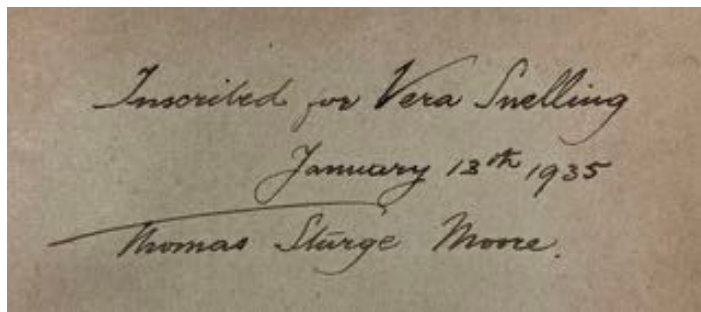 Inscribed for Vera Snelling
January 13th 1935
Thomas Sturge Moore.